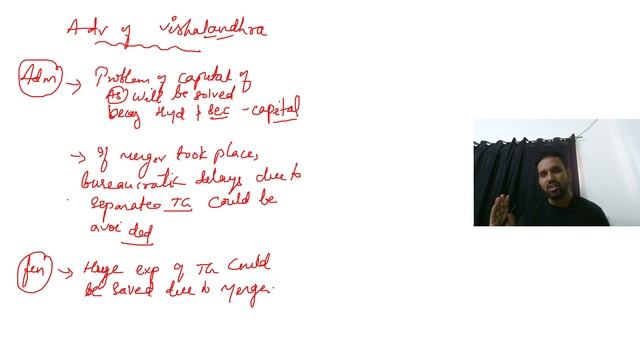 Adv of Vishalandhra
Adm → Problem of capital of
AS will be solved
being Hyd & Sec - capital
→ If merger took place,
bureaucratic delays due to
separate TG could be
avoided
fin → Huge exp of TG could
be saved due to merger.